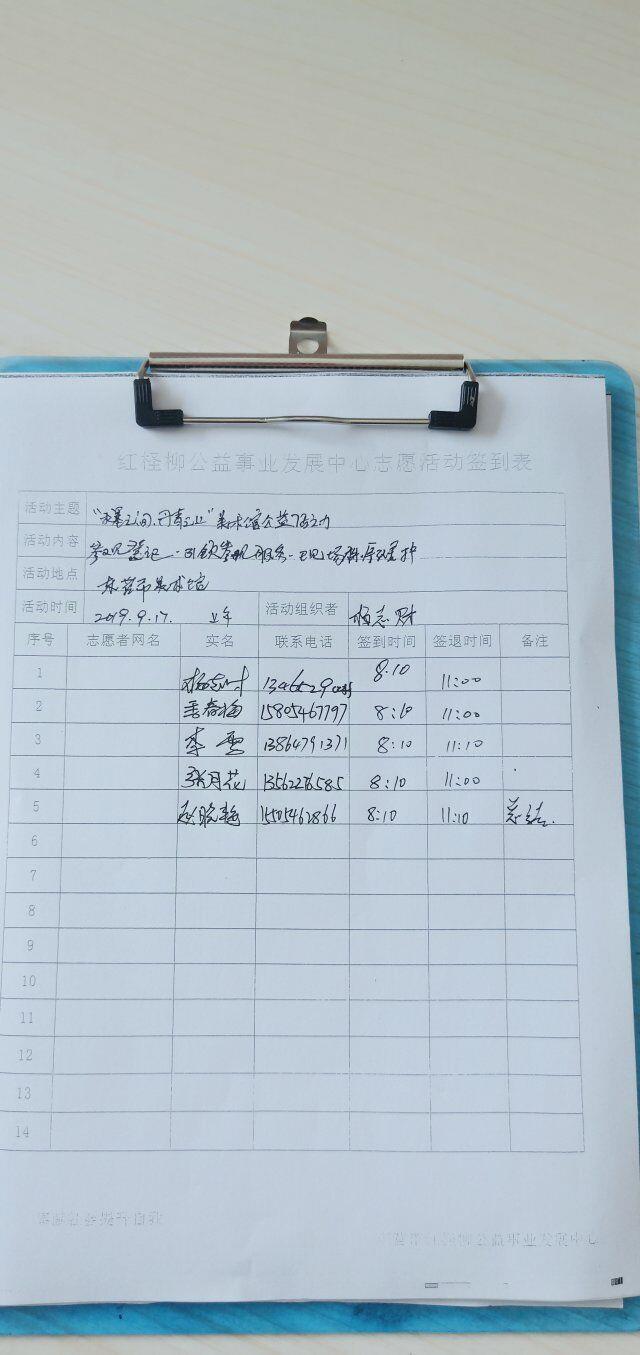 红柽柳公益事业发展中心志愿活动签到表
活动主题 "水墨之间、丹青之上"美术馆公益活动
活动内容 参观登记、引领参观服务、现场秩序维护
活动地点 东营市美术馆
活动时间 2019.9.17. 上午 活动组织者 杨志财
序号 志愿者网名 实名 联系电话 签到时间 签退时间 备注
1 杨志财 8:10 11:00
2 春梅 15805467797 8:10 11:00
3 李雪 13864791371 8:10 11:10
4 张月花 1356226585 8:10 11:00
5 赵晓艳 15505462866 8:10 11:10 总结.
6
7
8
9
10
11
12
13
14
公益事业发展中心